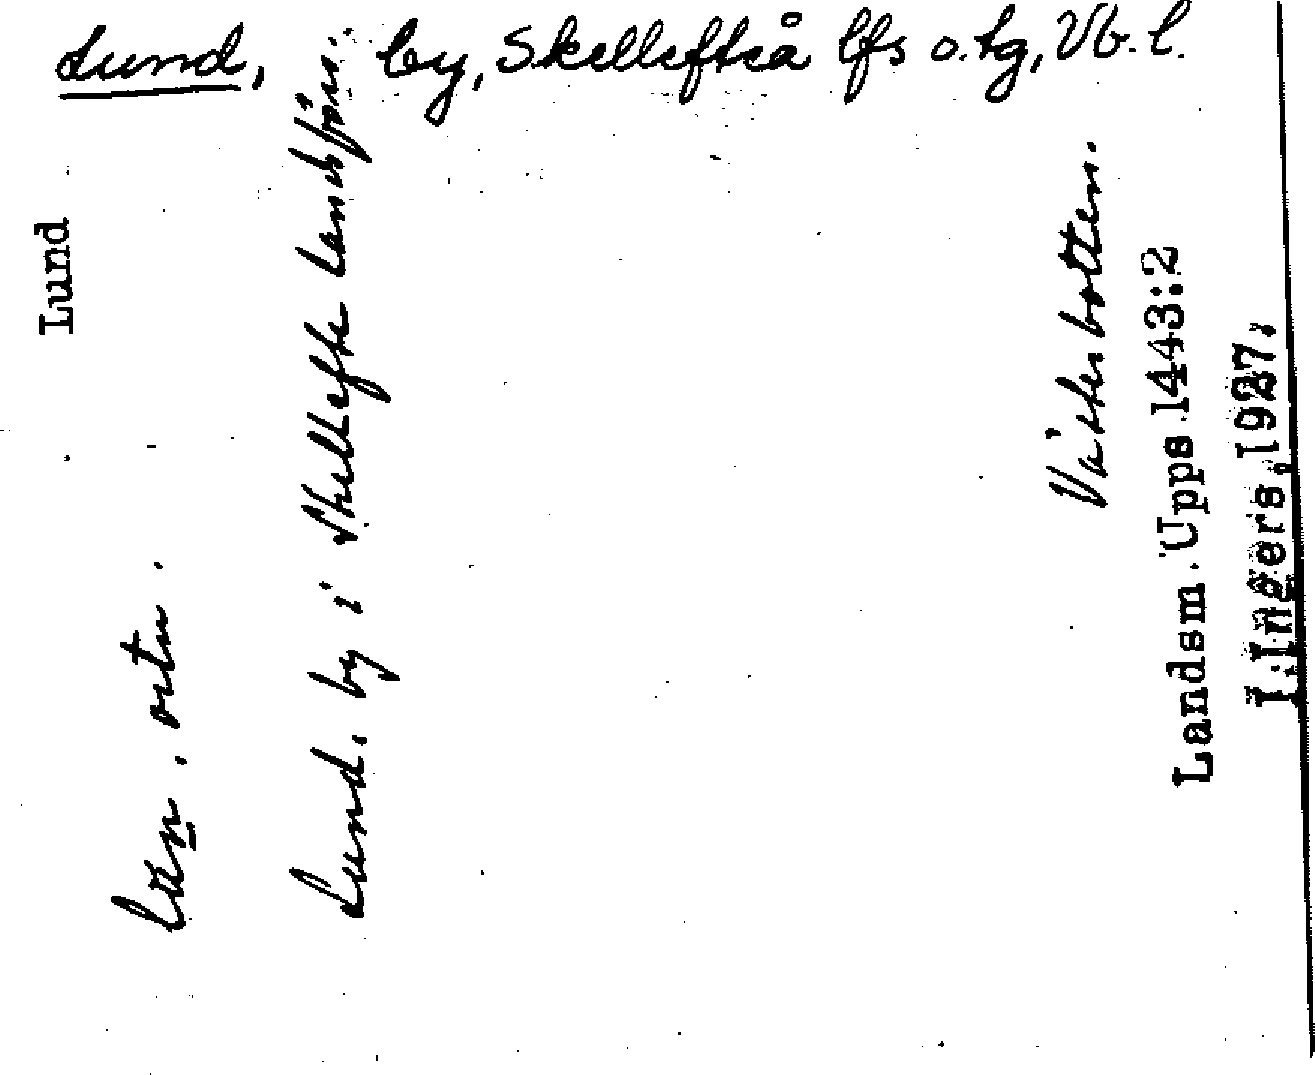 Lund, by, Skellefteå lfs o. tg, Vb. l.
Lund
lun̲. ortn.
Lund. by i Skellefte landsförs.
Västerbotten.
Landsm. Upps 1443:2
I. Ingers, 1927.